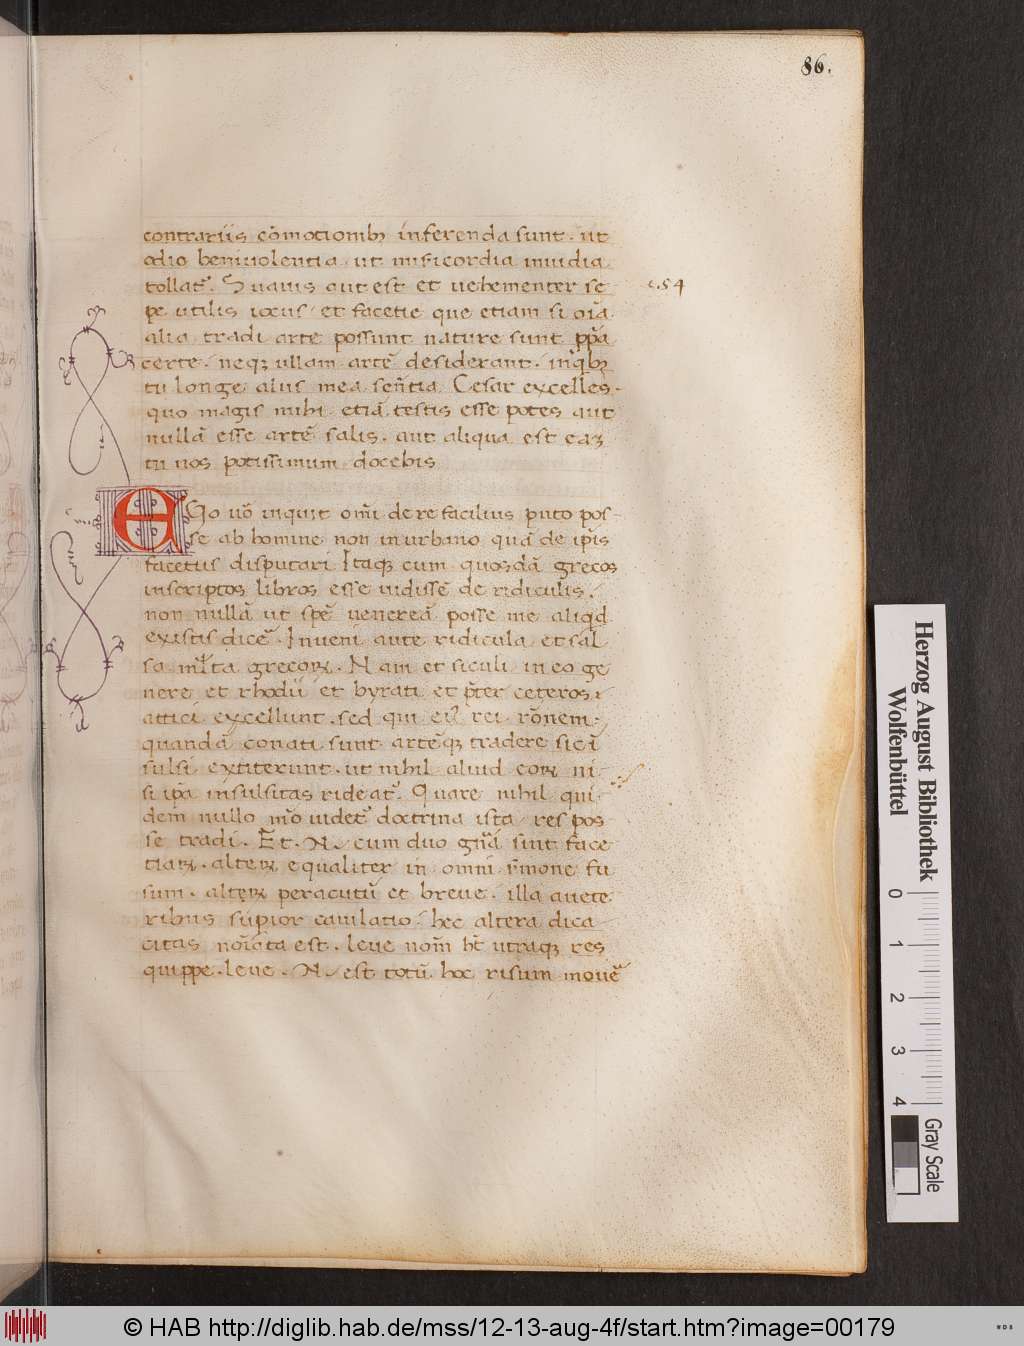 86.
contrariis cōmotionibꝫ inferenda sunt. ut
odio beniuolentia ut misericordia inuidia
tollat᷑. Suauis aut est et uehementer se
pe utilis iocus et facetie que etiam si oīa
alia tradi arte possunt nature sunt ꝓpͥa
certe. neqꝫ ullam artē desiderant. in qͥbꝫ
tu longe aliis mea sen̄tia Cesar excelles.
quo magis mihi etiā testis esse potes aut
nullā esse artē salis. aut aliqua est eaꝫ
tu nos potissimum docebis
c. 54
EGo uō inquit om̄i de re facilius puto pos-
se ab homine non inurbano quā de ip̄is
facetiis disputari Itaqꝫ cum quosdā grecos
inscriptos libros esse uidissē de ridiculis.
non nullā ut spē venereā posse me aliqd
existis dicē. Inueni aute ridicula et sal
sa ml̄ta grecoꝝ. Nam et siculi in eo ge
nere et rhodii et byrati et p̄ter ceteros
attici excellunt. sed qui eiꝰ rei rōnem
quandā conati sunt artēqꝫ tradere sic ī
sulsi extiterunt. ut nihil aliud eoꝝ ni
si ip̄a insulsitas rideat᷑. Quare nihil qui
dem nullo mō uidet᷑ doctrina ista res pos
se tradi. Et. N. cum duo gn̄a sint face
tiaꝝ. alteꝝ equaliter in omni s̄mone fu
sum. alteꝝ peracutū et breue. illa a uete
ribus supior cauilatio. hec altera dica
citas noīata est. leue nom̄ hꝫ utraqꝫ res
quippe. leue. N. est totū hoc risum mouē
Herzog August Bibliothek
Wolfenbüttel
0 1 2 3 4
Gray Scale
© HAB http://diglib.hab.de/mss/12-13-aug-4f/start.htm?image=00179